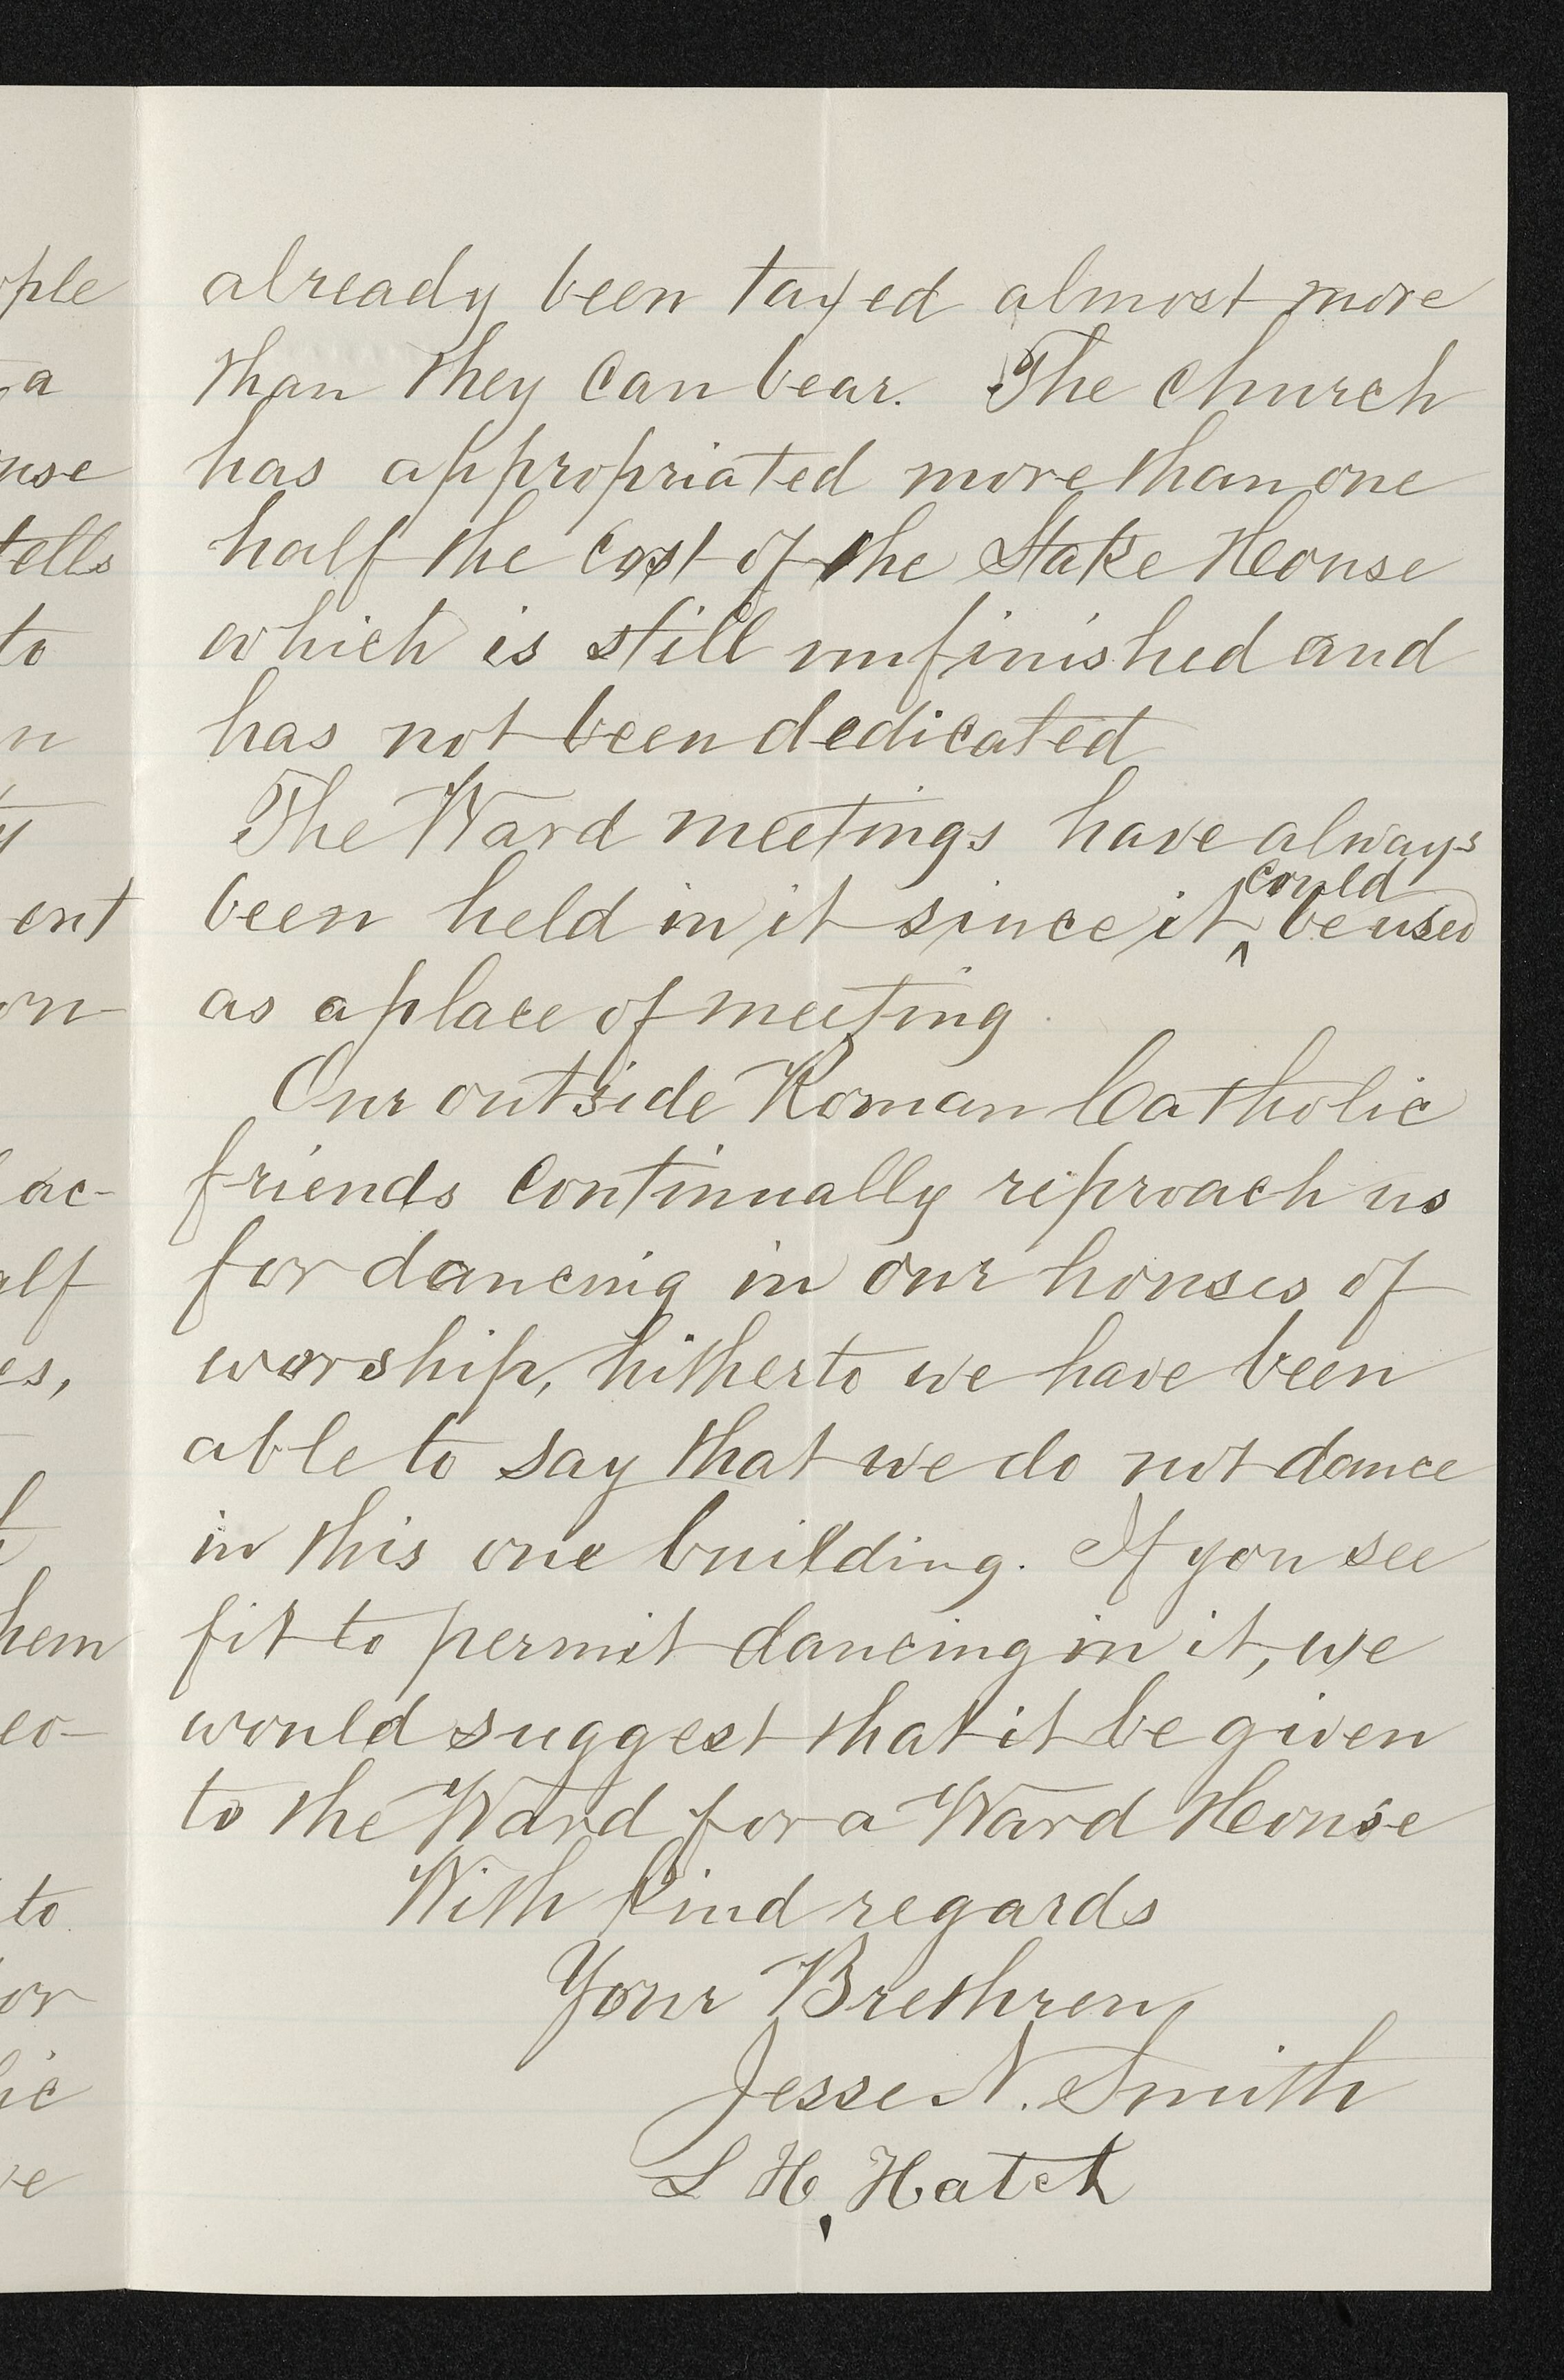 already been taxed almost more
than they can bear. The church
has appropriated more than one
half the cost of the Stake House
which is still unfinished and
has not been dedicated
The Ward meetings have always
been held in it since it ^could be used
as a place of meeting
Our outside Roman Catholic
friends continually reproach us
for dancing in our houses of
worship, hitherto we have been
able to say that we do not dance
in this one building. If you see
fit to permit dancing in it, we
would suggest that it be given
to the Ward for a Ward House
With kind regards
Your Brethren
Jesse N. Smith
L H. Hatch